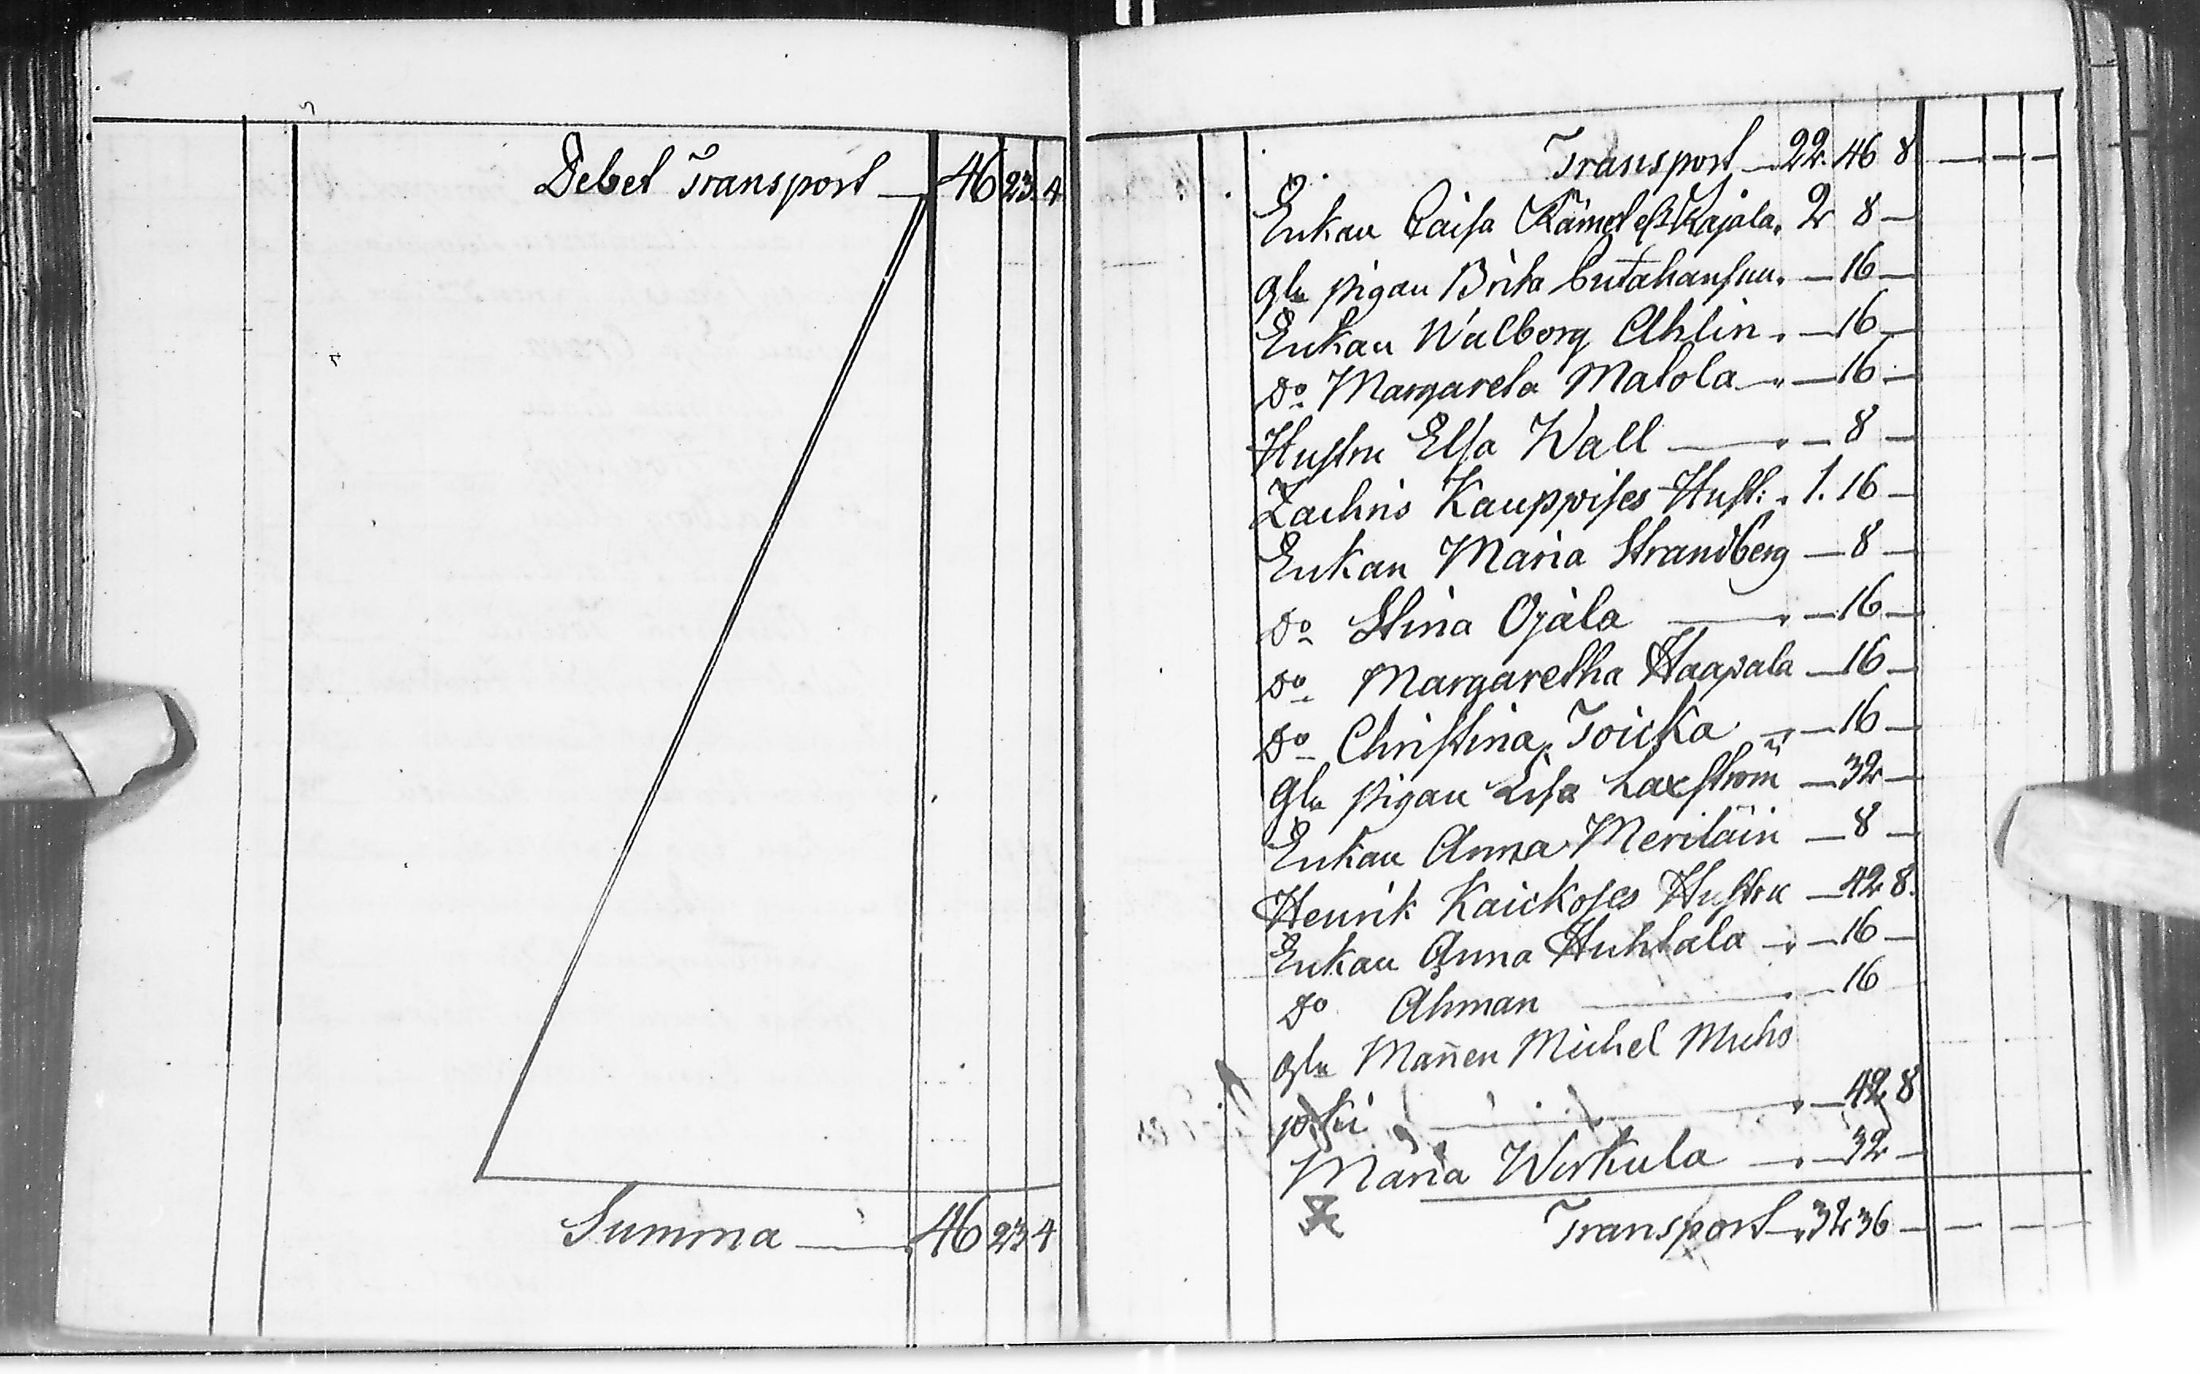 Debet Transport — 46 23 4
Summa — 46 23 4
Transport — 22. 46 8 — — —
Enkan Caisa Kämd Kajala. 2 8 —
gla pigan Brita — 16 —
Enkan Walborg Ahlin. — 16 —
Do Margareta Matola — — 16 —
Hustru Elsa Wall — — 8 —
Zachris Kauppises Hust: 1. 16 —
Enkan Maria Strandberg — 8 —
Do Stina Ojala — — 16 —
Do Margaretha Haapala — 16 —
Do Christina Toicka — — 16 —
gla pigan Lisa Laxström — 32 —
Enkan Anna Meriläin — 8 —
Henrik Kaickoses Hustru — 42 8.
Enkan Anna Huhtala — — 16 —
Do Åhman — — 16
gla Mañen Michel Muho
— 42 8
Maria Wirkula — — 32 —
Transport — 32 36 — — —